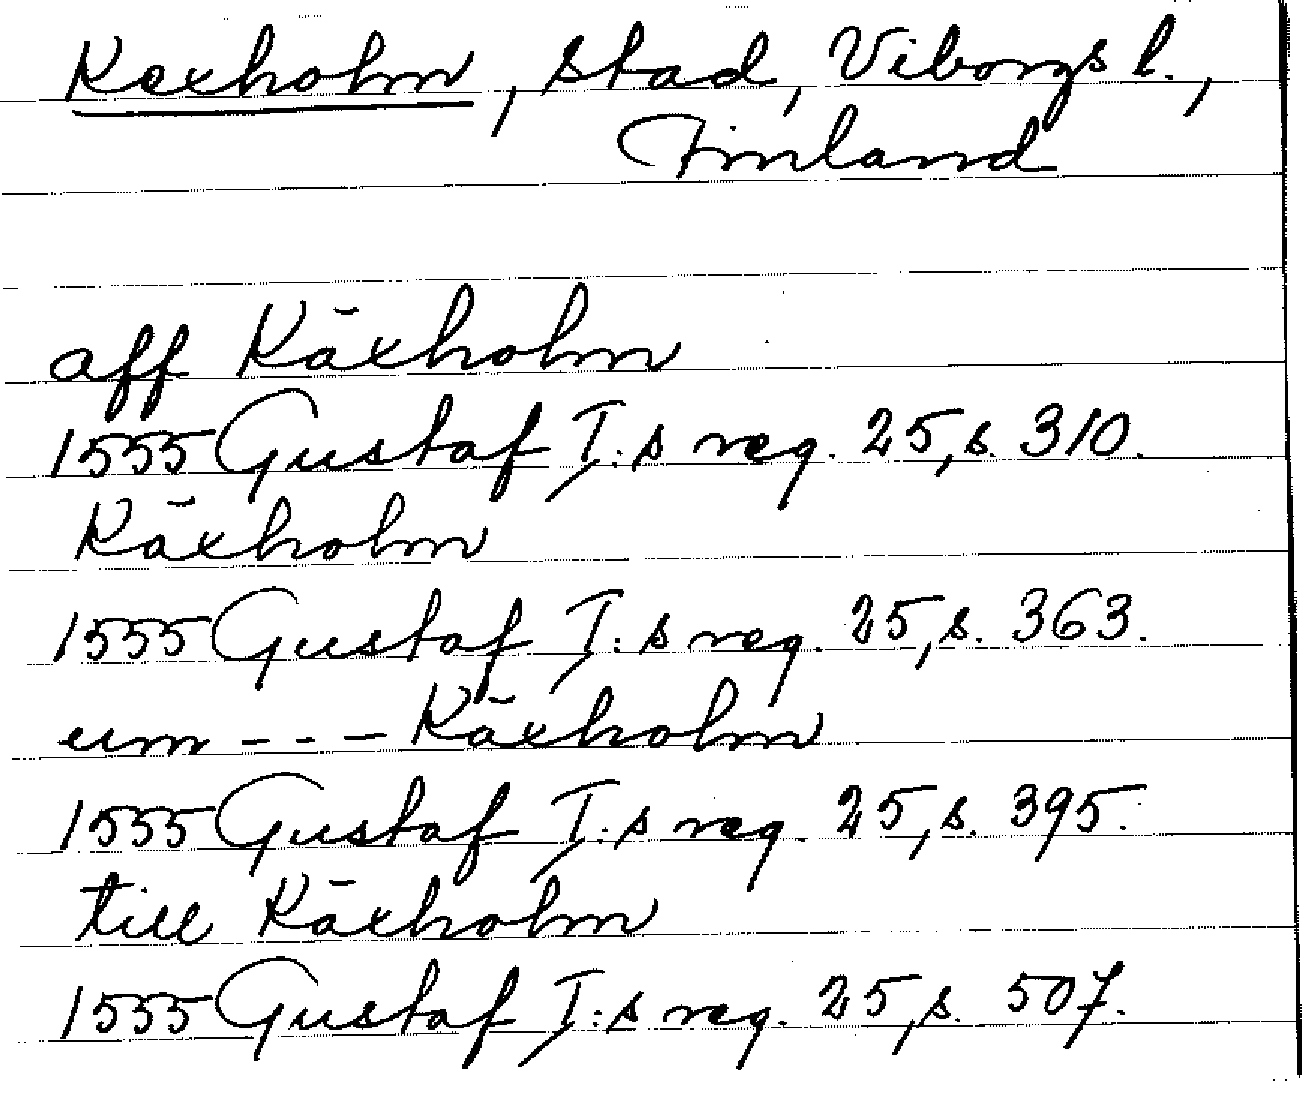 Kexholm, stad, Viborgs l.,
Finland
aff Käxholm
1555 Gustaf I:s reg. 25, s. 310.
Käxholm
1555 Gustaf I:s reg. 25, s. 363.
um - - - Käxholm
1555 Gustaf I:s reg. 25, s. 395.
till Käxholm
1555 Gustaf I:s reg. 25, s. 507.